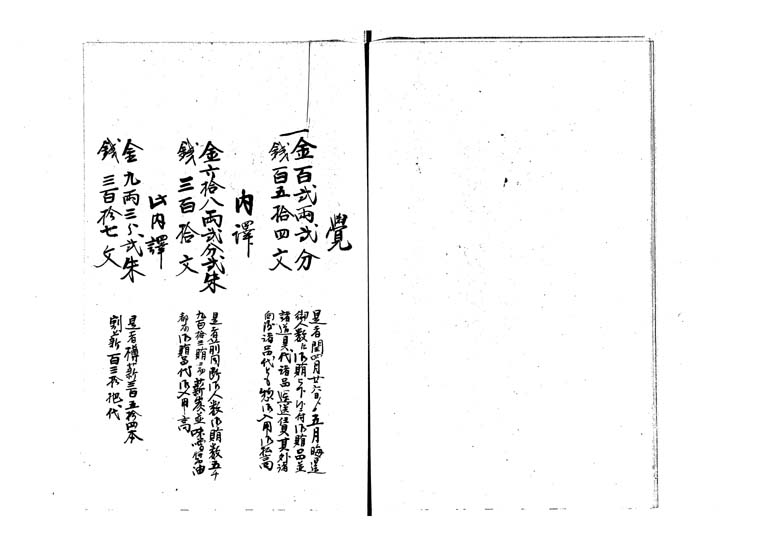 覺
一金百弐両弐分
銭百五拾四文
是者閏四月廿六日ゟ五月晦日迄
御人数江御賄被下候ニ付御賄品並
諸道具代諸品運送賃其外諸
向諸品代とも惣御入用御払高
内譯
金六拾八両弐分弐朱
銭三百拾文
是者前同断御人数御賄数五千
九百拾三賄之薪炭並味噌醤油
都而御賄品代御入用高
此内譯
金九両三分弐朱
銭三百拾七文
是者樽薪三百五拾四本
割薪百三拾把代